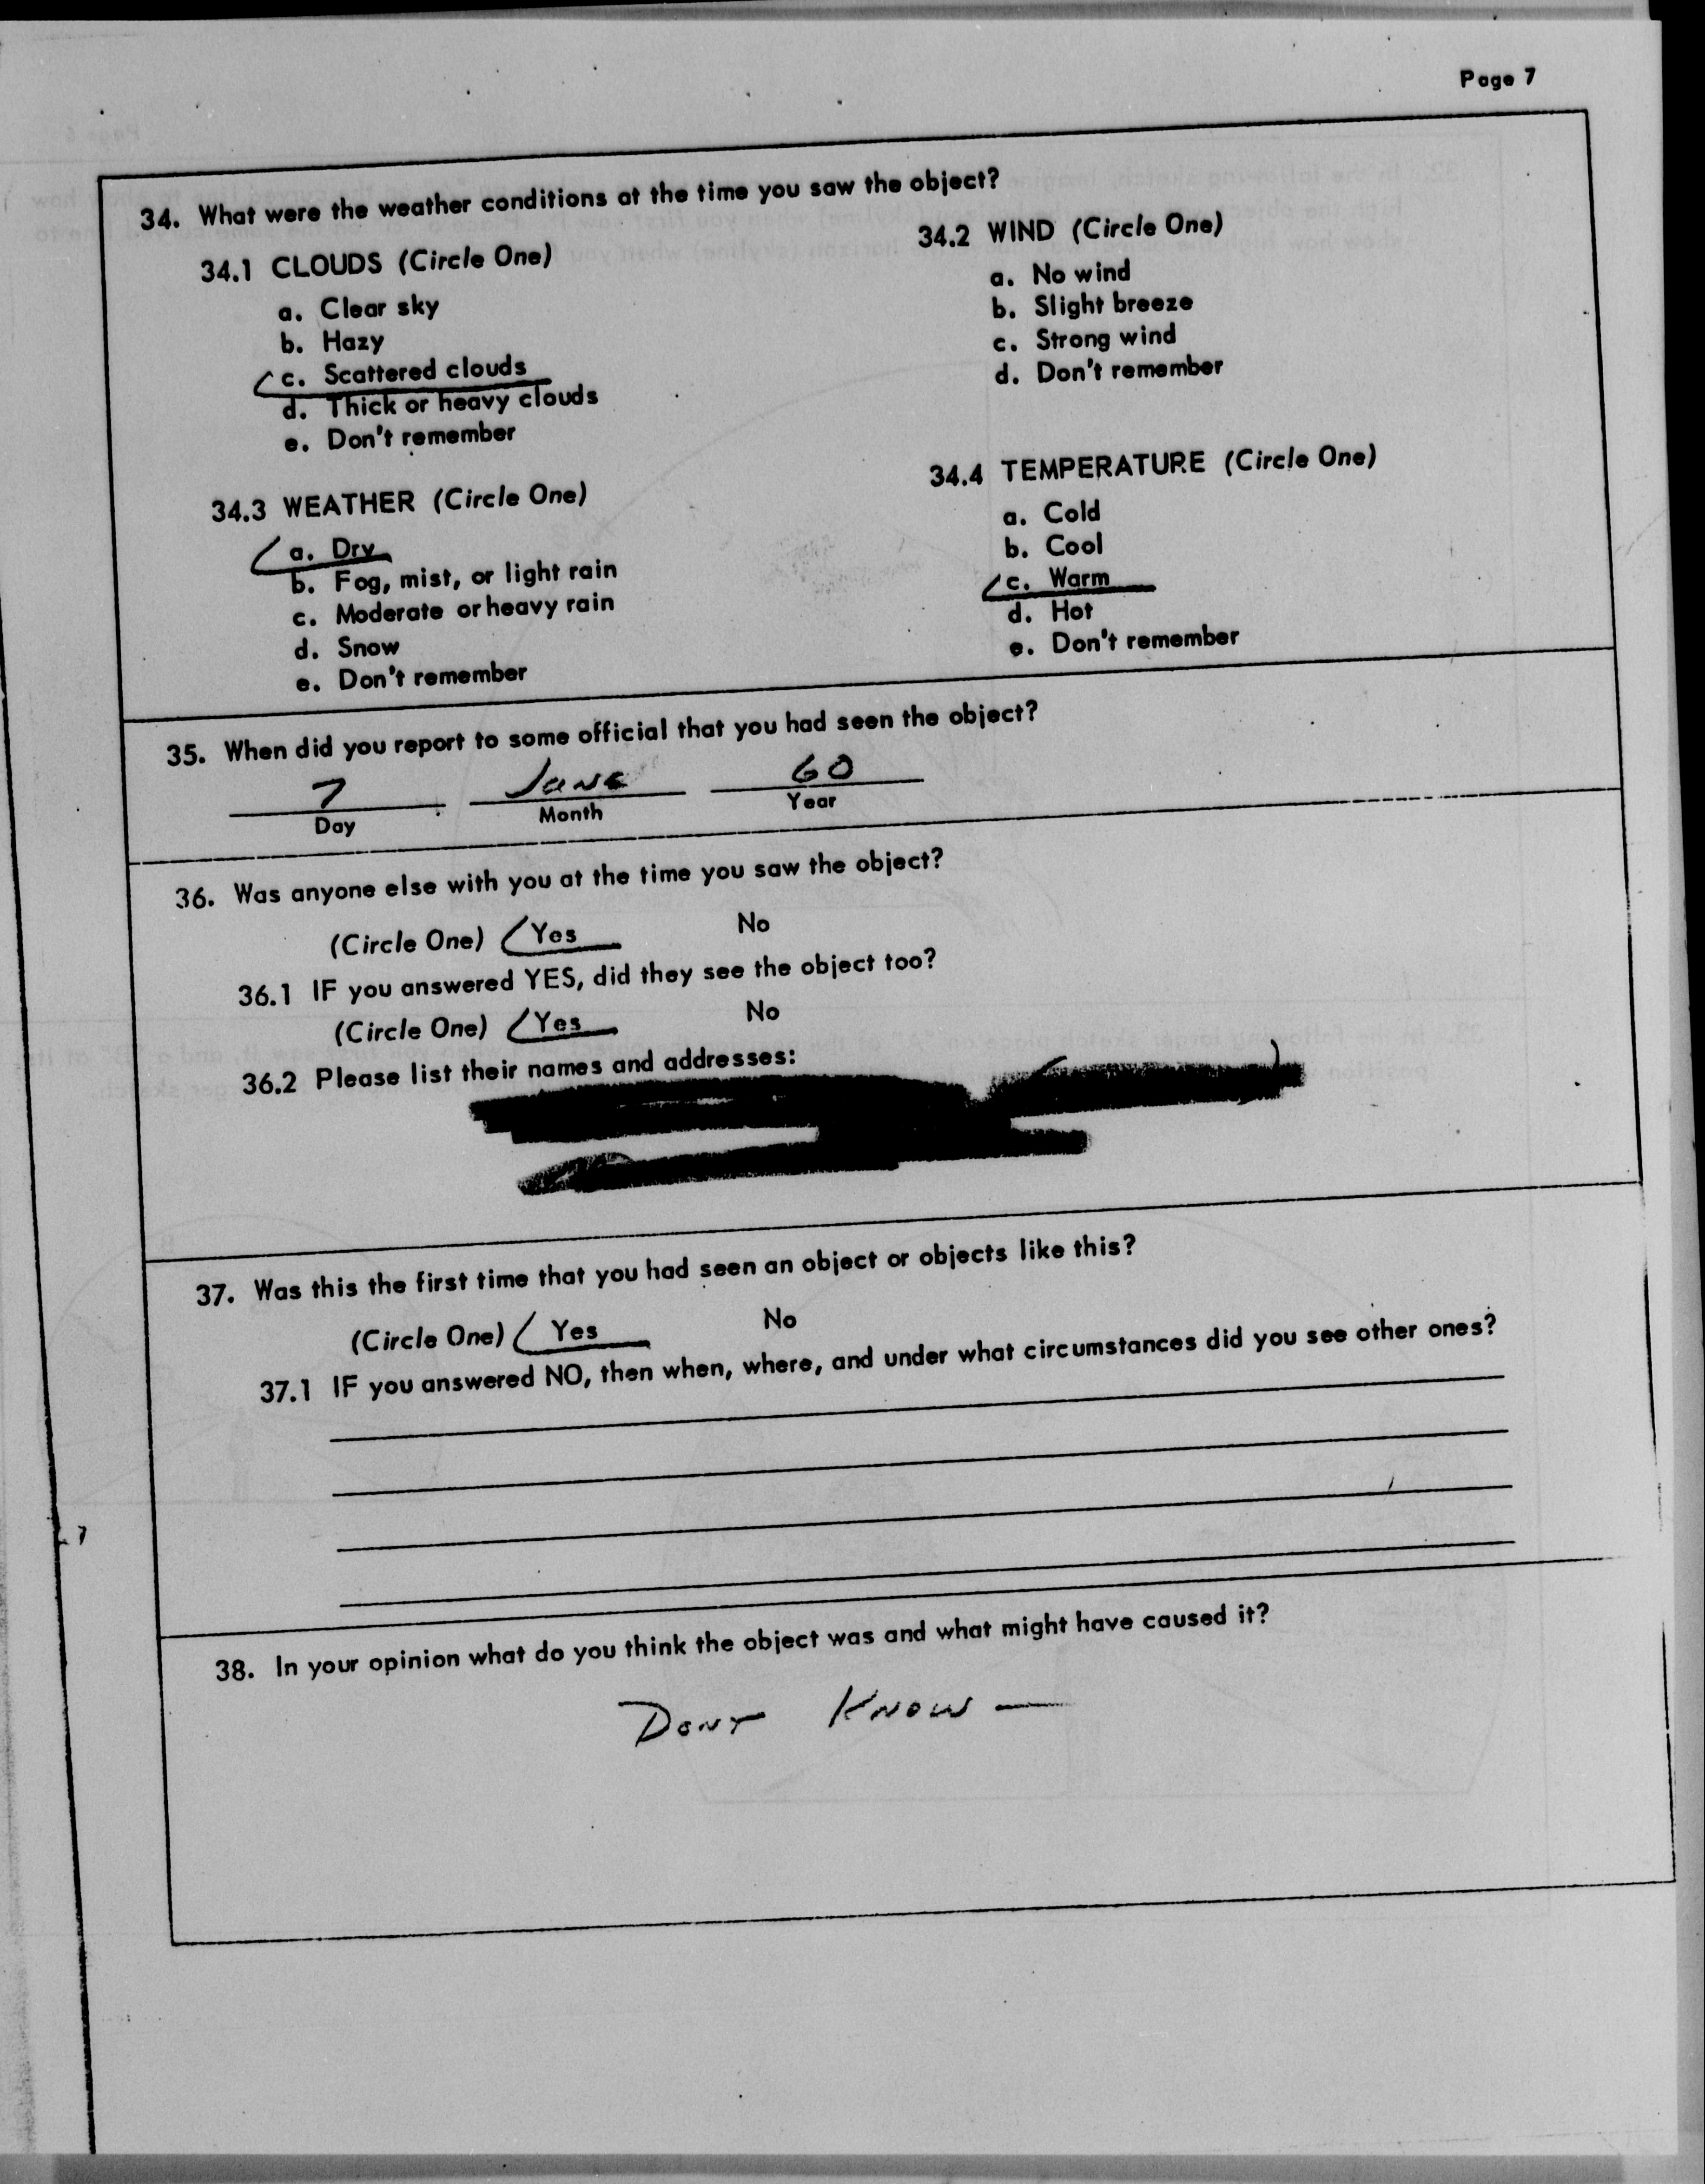 Page 7
34. What were the weather conditions at the time you saw the object?
34.1 CLOUDS (Circle One)
a. Clear sky
b. Hazy
c. Scattered clouds
d. Thick or heavy clouds
e. Don't remember
34.2 WIND (Circle One)
a. No wind
b. Slight breeze
c. Strong wind
d. Don't remember
34.3 WEATHER (Circle One)
a. Dry
b. Fog, mist, or light rain
c. Moderate or heavy rain
d. Snow
e. Don't remember
34.4 TEMPERATURE (Circle One)
a. Cold
b. Cool
c. Warm
d. Hot
e. Don't remember
35. When did you report to some official that you had seen the object?
7 June 60
Day Month Year
36. Was anyone else with you at the time you saw the object?
(Circle One) Yes No
36.1 IF you answered YES, did they see the object too?
(Circle One) Yes No
36.2 Please list their names and addresses:
37. Was this the first time that you had seen an object or objects like this?
(Circle One) Yes No
37.1 IF you answered NO, then when, where, and under what circumstances did you see other ones?
38. In your opinion what do you think the object was and what might have caused it?
DONT KNOW —